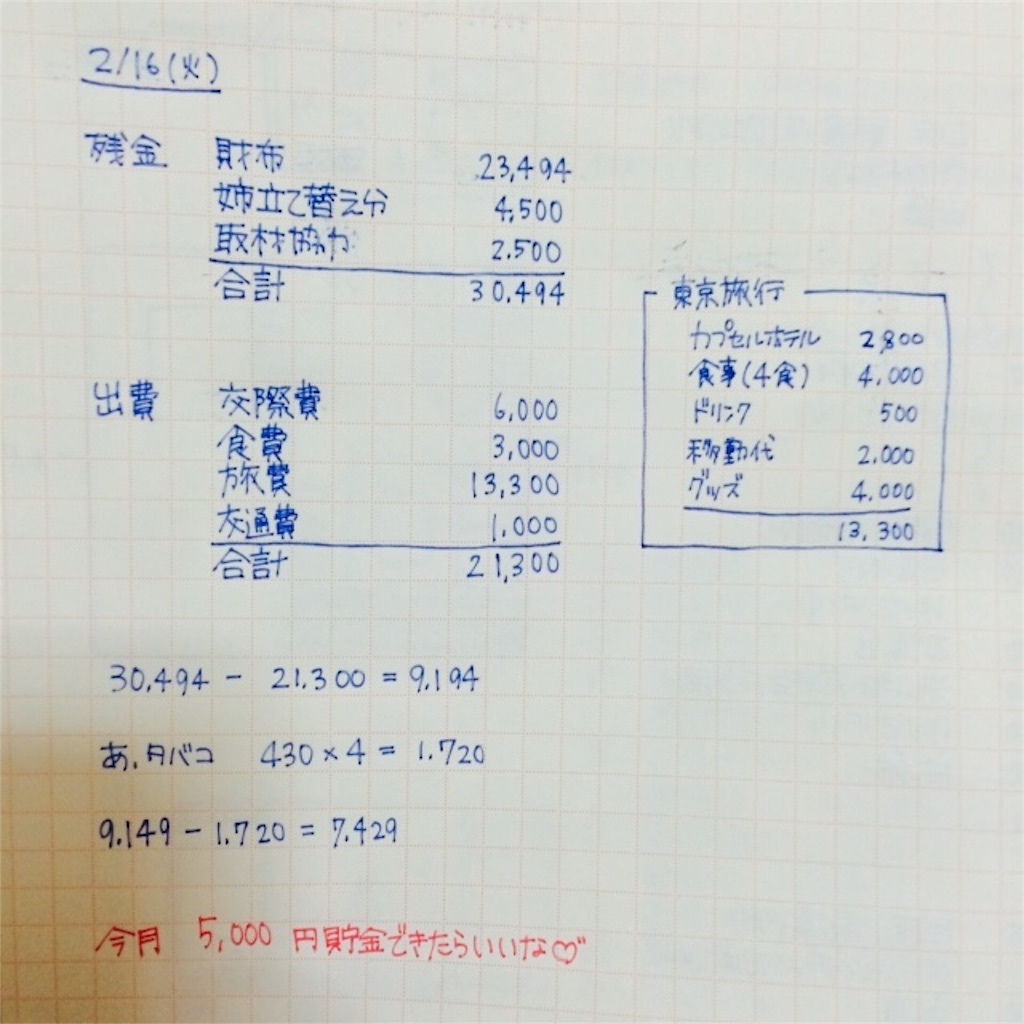 2/16(火)
残金 財布 23,494
姉立て替え分 4,500
取材協力 2.500
合計 30.494
出費 交際費 6,000
食費 3,000
旅費 13,300
交通費 1,000
合計 21,300
東京旅行
カプセルホテル 2,800
食事(4食) 4,000
ドリンク 500
移動代 2.000
グッズ 4.000
13,300
30.494 - 21.300 = 9.194
あ、タバコ 430×4 = 1.720
9.149 - 1.720 = 7.429
今月 5,000 円貯金できたらいいな♡